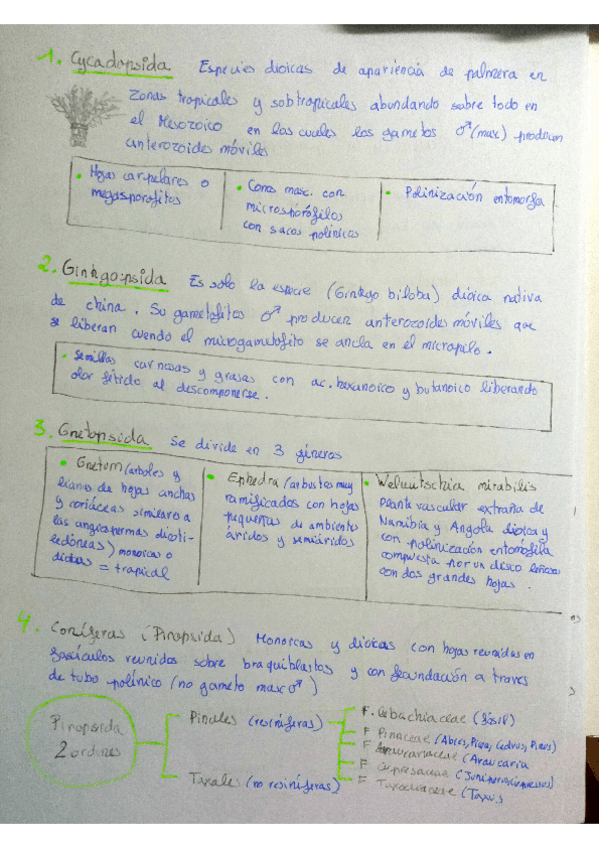 1. Cycadopsida Especies dioicas de apariencia de palmera en
zonas tropicales y sobtropicales abundando sobre todo en
el Mesozoico en las cuales los gametos ♂ (masc) producen
anterozoides móviles
• Hojas carpelares o
megasporofitos
• Conos masc. con
microsporófilos
con sacos polínicos
• Polinización entomorfa
2. Ginkgopsida Es solo la especie (Ginkgo biloba) dióica nativa
de china. Su gametofitos ♂ producen anterozoides móviles que
se liberan cuando el microgametofito se ancla en el micropilo.
• Semillas carnosas y grasas con ac. hexanoico y butanoico liberando
olor fétido al descomponerse.
3. Gnetopsida Se divide en 3 géneros
• Gnetum (arboles y
lianas de hojas anchas
y coriáceas similares a
las angiospermas dicoti-
ledóneas) monoicas o
dioicas = tropical
• Ephedra (arbustos muy
ramificados con hojas
pequeñas de ambientes
áridos y semiáridos
• Welwitschia mirabilis
Planta vascular extraña de
Namibia y Angola dioica y
con polinización entomófila
compuesta por un disco leñoso
con dos grandes hojas.
4. Coníferas (Pinopsida) Monoicas y dioicas con hojas reunidas en
fascículos reunidos sobre braquiblastos y con fecundación a traves
de tubo polínico (no gameto masc ♂)
Pinopsida
2 ordenes
Pinales (resiníferas)
F. Lebachiaceae (fósil)
F Pinaceae (Abies, Picea, Cedrus, Pinus)
F Araucariaceae (Araucaria
F Cupresaceae (Juniperus, Cupressus)
F Taxodiaceae (Taxus
Taxales (no resiníferas)